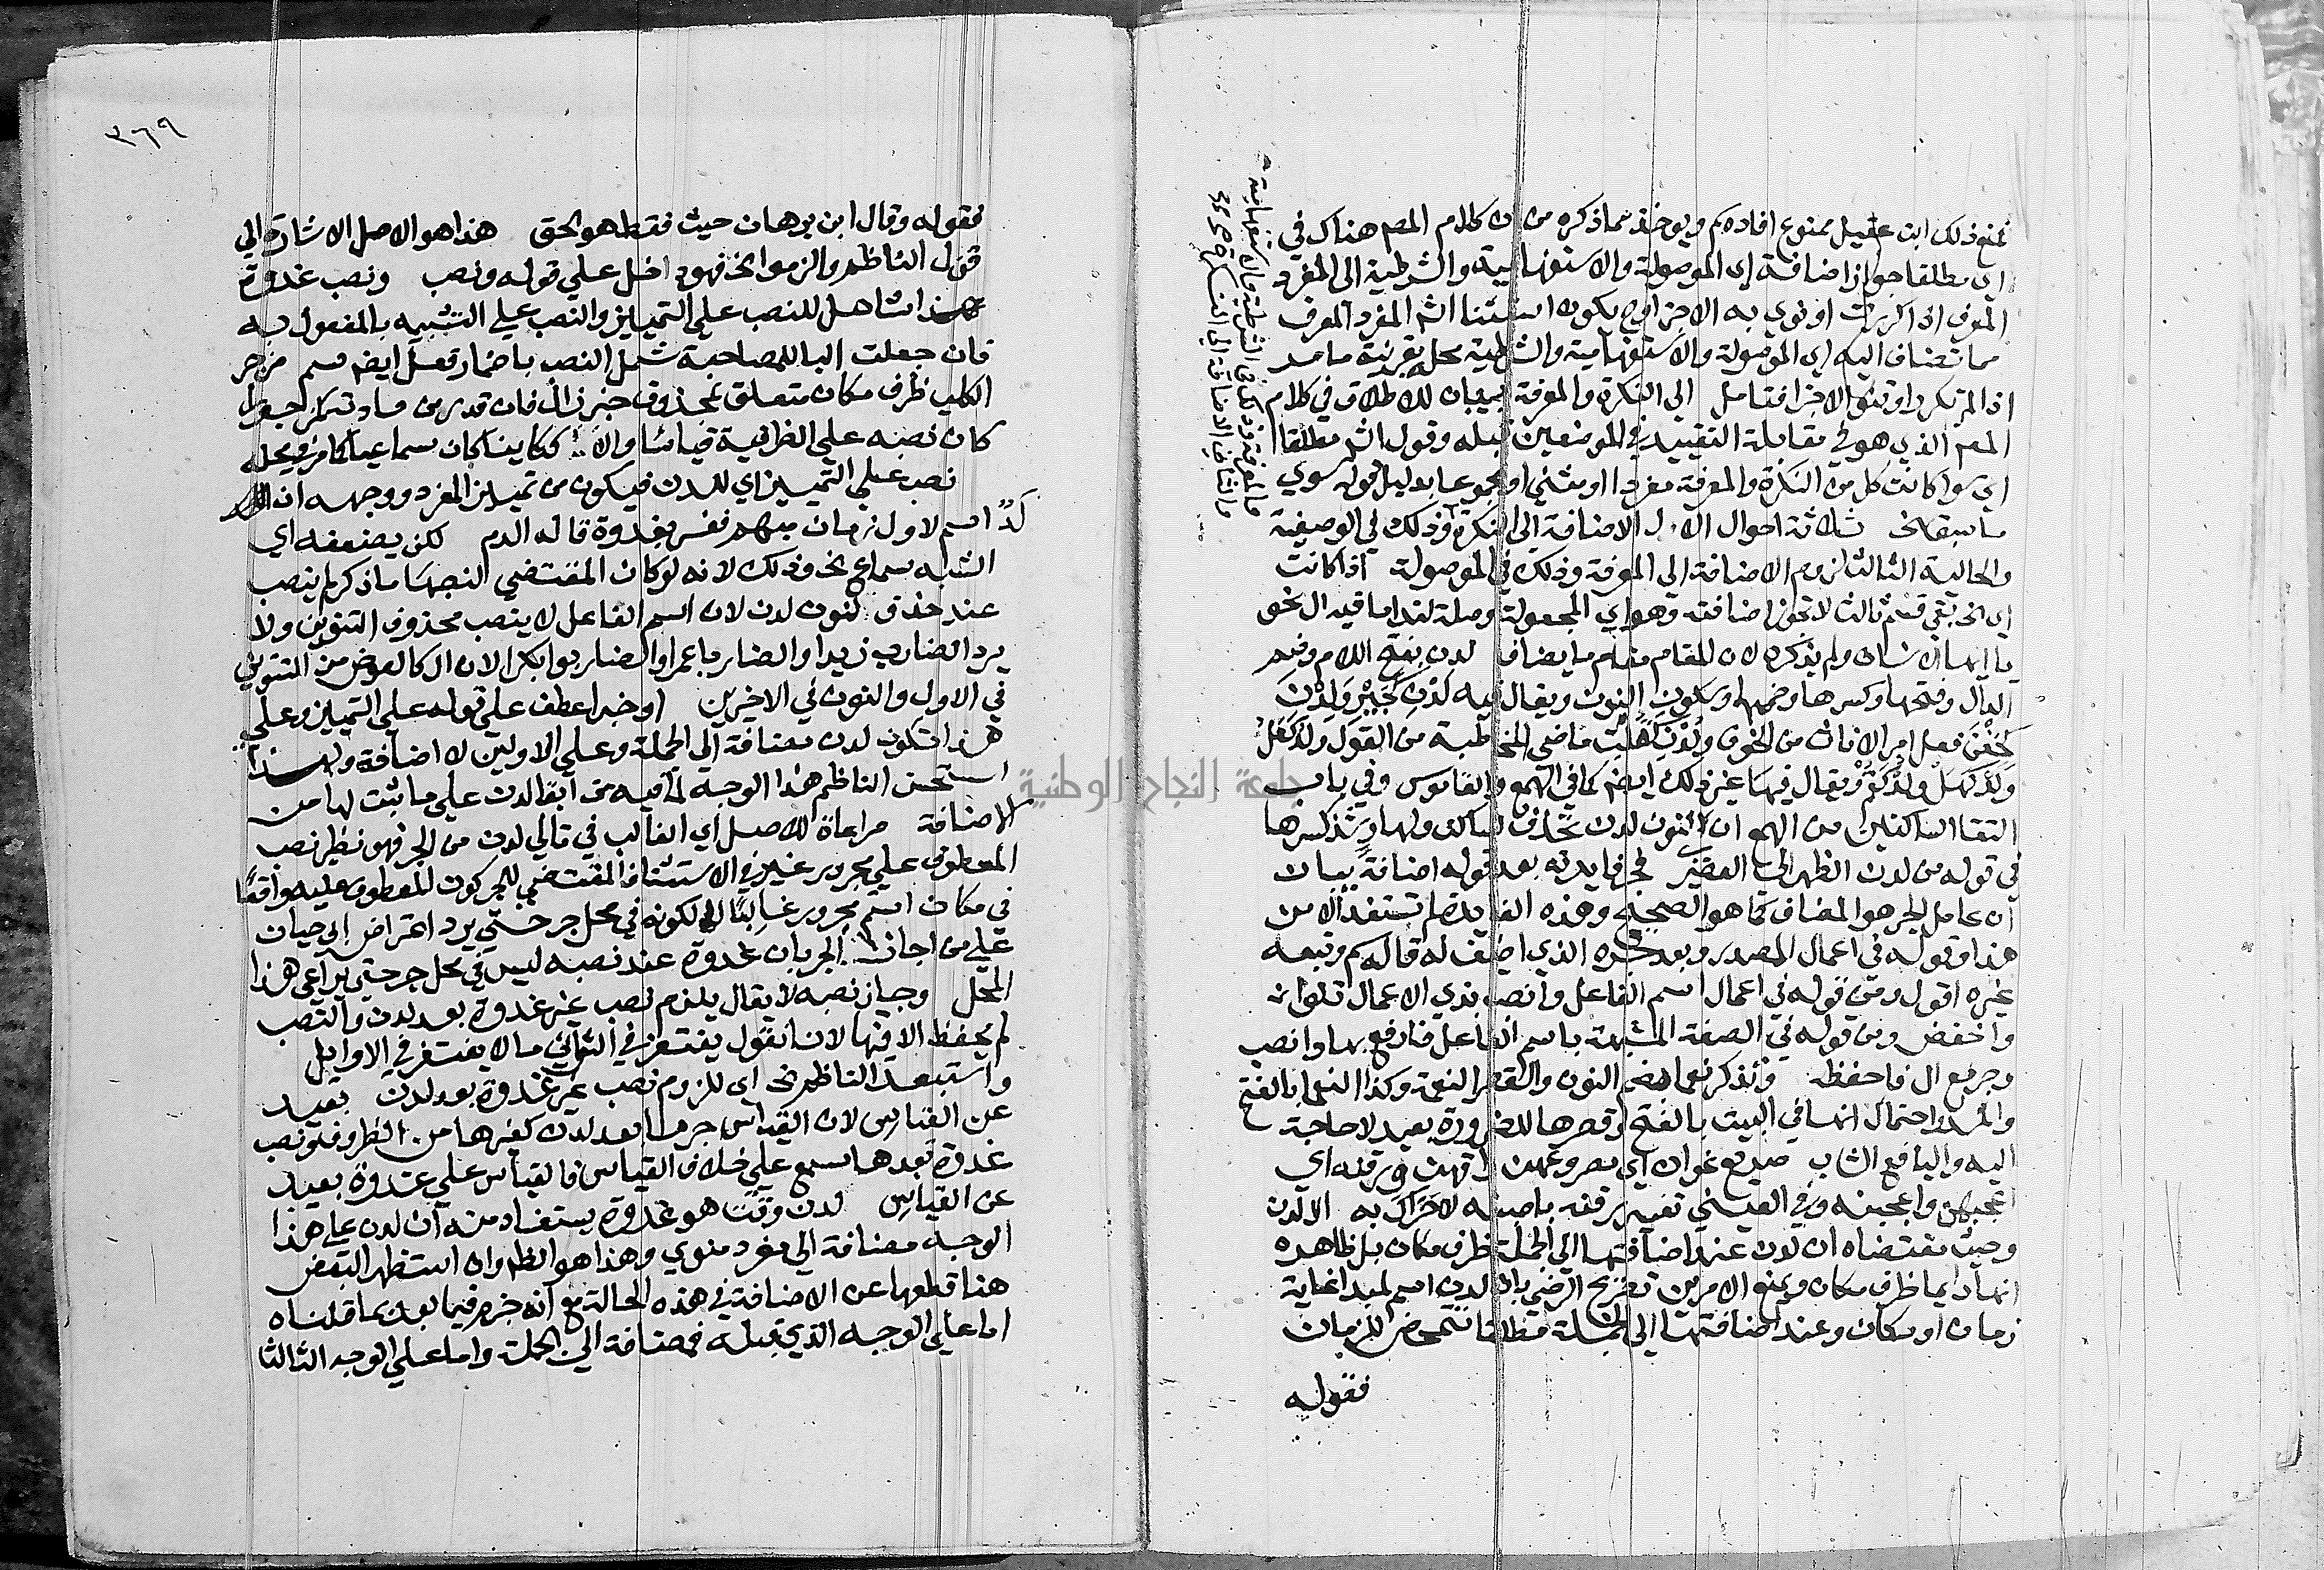 فمنع ذلك ابن عقيل ممنوع افاده م ويوخذ مما ذكره من ان كلام المص هناك في
اي مطلقا جواز اضافة اي الموصولة والاستفهامية والشرطية الى المفرد
المعرف اذا كررت او نوي به الاجزا وح يكون استثنا الش المفرد المعرف
مما تضاف اليه اي الموصولة والاستفهامية والشرطية محله بقرينة ما مر
اذا لم تكرر او تنو الاجزا فتامل الى النكرة والمعرفة بيان للاطلاق في كلام
المص الذي هو في مقابلة التقييد في الموضعين قبله وقول الش مطلقا
اي سوا كانت كل من النكرة والمعرفة مفردا او مثنى او مجموعا بدليل قوله سوى
ما سبق الخ ثلاثة احوال الاول الاضافة الى النكرة وذلك في الوصفية
والحالية الثالث لزوم الاضافة الى المعرفة وذلك في الموصولة اذا كانت
اي الخ بقي قسم ثالث لا تجوز اضافته وهو اي المجعولة وصلة لندا ما فيه ال نحو
يا ايها الانسان ولم يذكره لان المقام مقام ما يضاف لدن بفتح اللام وضم
الدال وفتحها وكسرها وضمها وسكون النون ويقال فيه لدن كجير ولدن
كخفن فعل امر الاناث من الخوف ولدن كقلت ماضي المخاطبة من القول ولد كقل
ولد كهل ولد كقم ويقال فيها غير ذلك ايضم كما في الهمع والقاموس وفي باب
التقا الساكنين من الهمع ان النون لدن تحذف لساكن وليها وشذ كسرها
في قوله من لدن الظهر الى العصير فجر فايدته بعد قوله اضافة بيان
ان عامل الجر هو المضاف كما هو الصحيح وهذه الفايدة لم تستفد الا من
هذا وقوله في اعمال المصدر وبعد جره الذي اضيف له قاله م وتبعه
غيره اقول ومن قوله في اعمال اسم الفاعل وانصب بذي الاعمال تلوا نه
واخفض ومن قوله في الصفة المشبهة باسم الفاعل فارفع بها وانصب
وجر مع ال فاحفظه وتذكر نعما بضم النون والقصر النعمة وكذا النعما بالفتح
والمد واحتمال انها في البيت بالفتح وقصرها للضرورة بعيد لا حاجة
اليه واليافع الشاب صريع غوان اي مصروعهن راقهن ورقنه اي
اعجبهن واعجبنه وفي العيني تفسير رقنه باصبنه لا حراك به الا لدن
وحيث مقتضاه ان لدن عند اضافتها الى الجملة ظرف مكان بل ظاهره
انها دايما ظرف مكان ويمنع الامرين تصريح الرضي بان لدن اسم لمبدا غاية
زمان او مكان وعند اضافتها الى الجملة مطلقا تتمحض للزمان
فقوله
٣٦٩
فقوله وقال ابن برهان حيث فقط هو الحق هذا هو الاصل الاشارة الى
قول الناظم والزموا الخ فهو داخل على قوله ونصب ونصب غدوة
هذا شامل للنصب على التمييز والنصب على التشبيه بالمفعول به
فان جعلت البا للمصاحبة شمل النصب باضمار فعل ايضم سم مزجر
الكلب ظرف مكان متعلق بمحذوف خبر زال فان قدر من مادته كزجر
كان نصبه على الظرفية قياسا والا فكاينا كان سماعيا كما مر في محله
نصب على التمييز اي للدن فيكون من تمييز المفرد ووجهه ان
لد اسم لاول زمان مبهم ففسر بغدوة قاله الدم لكن يضعفه اي
الشبه سماع الخ وذلك لانه لو كان المقتضي لنصبها ما ذكر لم ينصب
عند حذف نون لدن لان اسم الفاعل لا ينصب محذوف التنوين ولا
يرد الضارب زيدا والضاربا عمرا والضاربوا بكرا لان ال كالعوض من التنوين
في الاول والنون في الاخيرين او خبرا عطف على قوله على التمييز وعلى
هذا تكون لدن مضافة الى الجملة وعلى الاولين لا اضافة ولهذا
استحسن الناظم هذا الوجه لما فيه من ابقا لدن على ما ثبت لها من
الاضافة مراعاة للاصل اي الغالب في تالي لدن من الجر فهو نظير نصب
المعطوف على مجرور غير في الاستثناف المقتضي للجر كون المعطوف عليه واقعا
في مكان اسم مجرور غالبا لا لكونه في محل جر حتى يرد اعتراض ابي حيان
على من اجاز الجر بان غدوة عند نصبه ليس في محل جر حتى يراعى هذا
المحل وجاز نصبه لا يقال يلزم نصب غير غدوة بعد لدن والنصب
لم يحفظ الا فيها لانا نقول يغتفر في الثواني ما لا يغتفر في الاوايل
واستبعد الناظم الخ اي للزوم نصب غير غدوة بعد لدن بعيد
عن القياس لان القياس جر ما بعد لدن كغيرها من الظروف ونصب
غدوة بعدها سمع على خلاف القياس فالقياس على غدوة بعيد
عن القياس لدن وقت هو غدوة يستفاد منه ان لدن على هذا
الوجه مضافة الى مفرد منوي وهذا هو الظم وان استظهر البعض
هنا قطعها عن الاضافة في هذه الحالة مع انه جزم فيما بعد بما قلناه
اما على الوجه الذي قبله فمضافة الى الجملة واما على الوجه الثالث
جامعة النجاح الوطنية